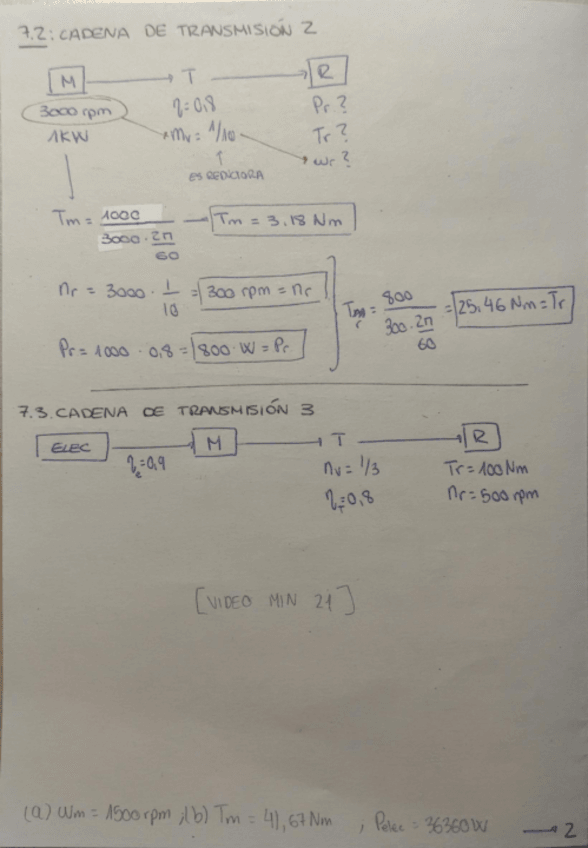 7.2: CADENA DE TRANSMISIÓN 2
M → T → R
3000 rpm η=0,8 Pr?
1KW mv = 1/10 Tr?
ES REDUCTORA wr?
Tm = 1000 / (3000 · 2π/60) → Tm = 3,18 Nm
nr = 3000 · 1/10 = 300 rpm = nr
Pr = 1000 · 0,8 = 800 · W = Pr
Tr = 800 / (300 · 2π/60) = 25,46 Nm = Tr
7.3. CADENA DE TRANSMISIÓN 3
ELEC → M → T → R
ηe=0,9 nv = 1/3 Tr = 100 Nm
ηT=0,8 nr = 500 rpm
[VIDEO MIN 21]
(a) Wm = 1500 rpm ; (b) Tm = 41,67 Nm ; Pelec = 36360 W → 2